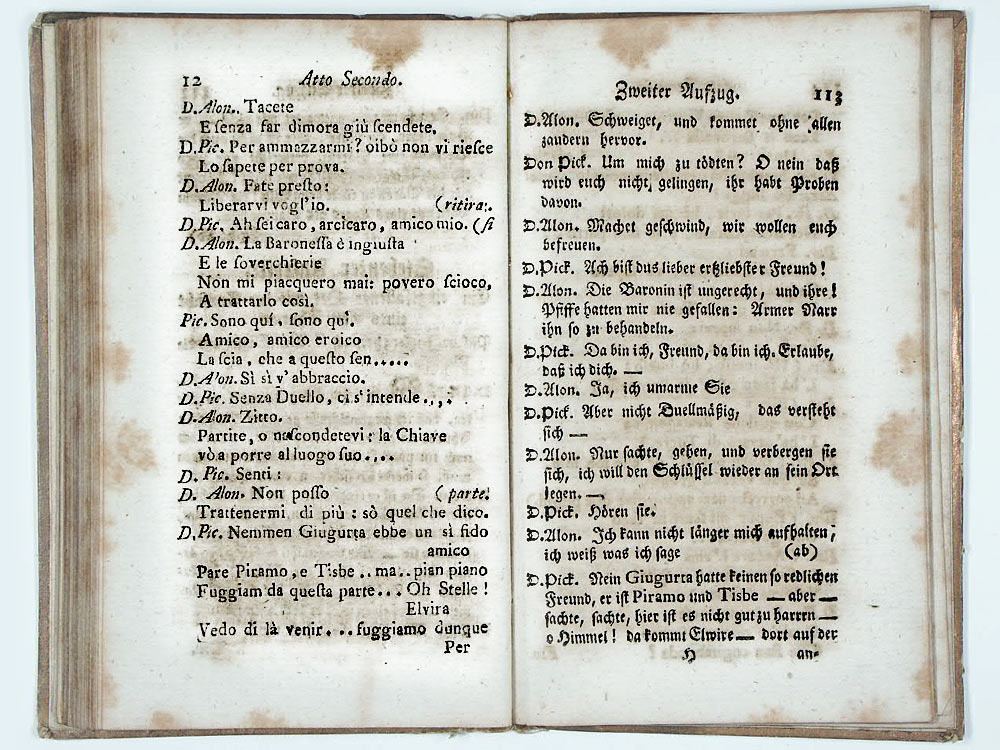 12 Atto Secondo.
D.Alon. Tacete
E senza far dimora giù scendete.
D.Pic. Per ammazzarmi? oibò non vi riesce
Lo sapete per prova.
D.Alon. Fate presto:
Liberarvi vogl'io. (ritira.
D.Pic. Ah sei caro, arcicaro, amico mio. (si
D.Alon. La Baronessa è ingiusta
E le soverchierie
Non mi piacquero mai: povero scioco,
A trattarlo così.
Pic. Sono quì, sono quì.
Amico, amico eroico
Lascia, che a questo sen.....
D.A'on. Sì sì v'abbraccio.
D.Pic. Senza Duello, ci s'intende....
D.Alon. Zitto.
Partite, o nascondetevi: la Chiave
vò a porre al luogo suo....
D. Pic. Senti:
D. Alon. Non posso (parte.
Trattenermi di più: sò quel che dico.
D.Pic. Nemmen Giugurta ebbe un sì fido
amico
Pare Piramo, e Tisbe .. ma.. pian piano
Fuggiam da questa parte... Oh Stelle!
Elvira
Vedo di là venir. .. fuggiamo dunque
Per
Zweiter Aufzug. 113
D.Alon. Schweiget, und kommet ohne allen
zandern hervor.
Don Pick. Um mich zu tödten? O nein daß
wird euch nicht gelingen, ihr habt Proben
davon.
D.Alon. Machet geschwind, wir wollen euch
befreuen.
D.Pick. Ach bist dus lieber erzliebster Freund!
D.Alon. Die Baronin ist ungerecht, und ihre!
Pfiffe hatten mir nie gefallen: Armer Narr
ihn so zu behandeln.
D.Pick. Da bin ich, Freund, da bin ich. Erlaube,
daß ich dich. —
D.Alon. Ja, ich umarme Sie
D.Pick. Aber nicht Duellmäßig, das versteht
sich —
D.Alon. Nur sachte, gehen, und verbergen sie
sich, ich will den Schlüssel wieder an sein Ort
legen. —
D.Pick. Hören sie.
D.Alon. Ich kann nicht länger mich aufhalten,
ich weiß was ich sage (ab)
D.Pick. Nein Giugurta hatte keinen so redlichen
Freund, er ist Piramo und Tisbe — aber —
sachte, sachte, hier ist es nicht gut zu harren —
o Himmel! da kommt Elwire — dort auf der
H an-